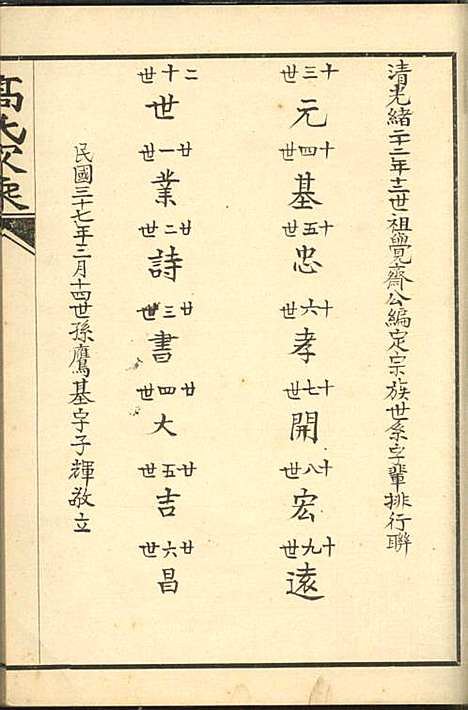 清光緒二十二年十二世祖覺齋公編定宗族世系字輩排行聯
十三世 元 十四世 基 十五世 忠 十六世 孝 十七世 開 十八世 宏 十九世 遠
二十世 世 廿一世 業 廿二世 詩 廿三世 書 廿四世 大 廿五世 吉 廿六世 昌
民國三十七年三月十四世孫鷹基字子輝敬立
高氏家乘